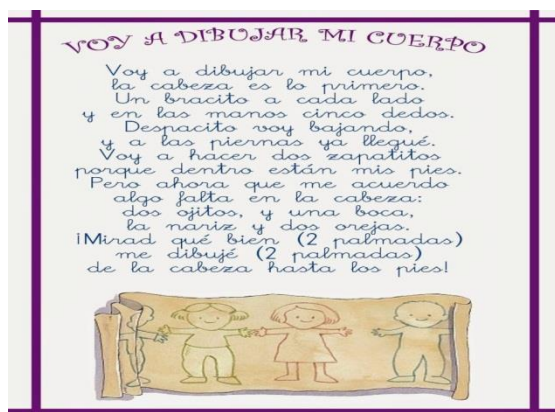 VOY A DIBUJAR MI CUERPO
Voy a dibujar mi cuerpo,
la cabeza es lo primero.
Un bracito a cada lado
y en las manos cinco dedos.
Despacito voy bajando,
y a las piernas ya llegué.
Voy a hacer dos zapatitos
porque dentro están mis pies.
Pero ahora que me acuerdo
algo falta en la cabeza:
dos ojitos, y una boca,
la nariz y dos orejas.
¡Mirad qué bien (2 palmadas)
me dibujé (2 palmadas)
de la cabeza hasta los pies!